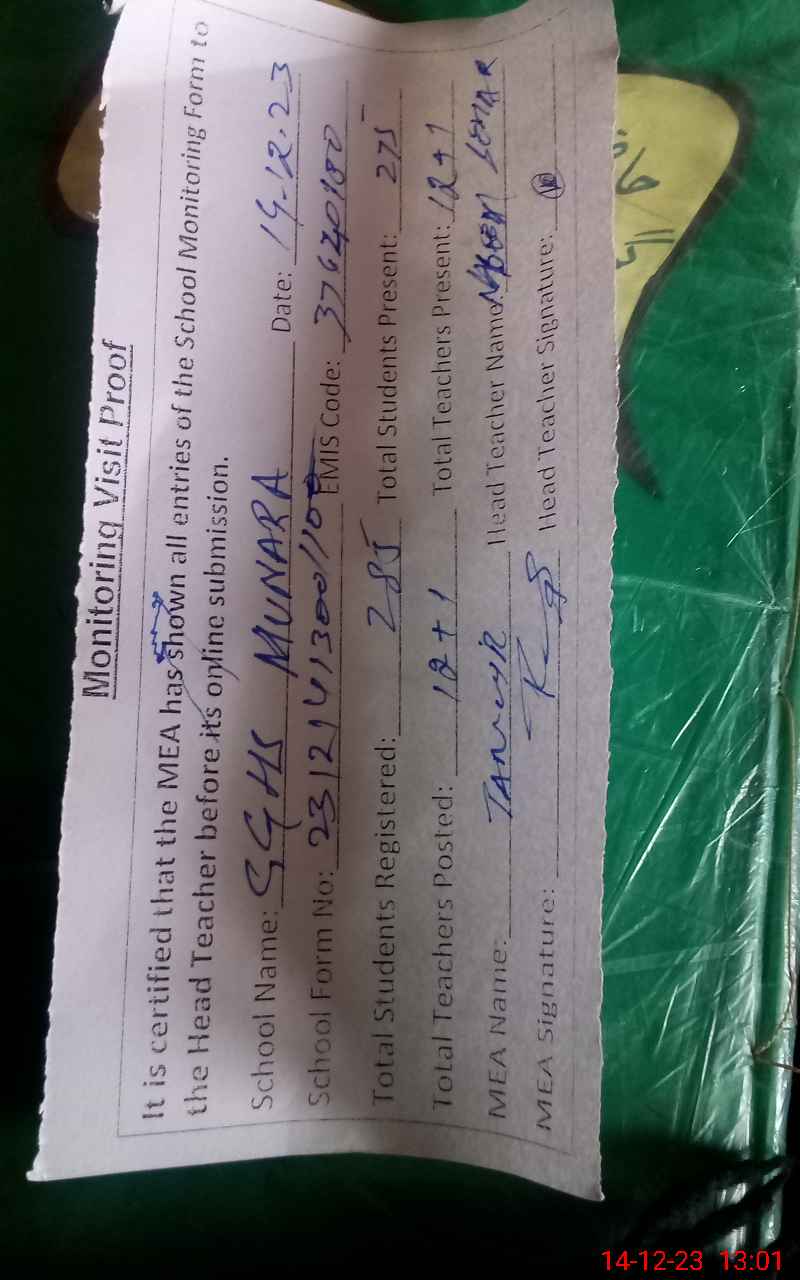 Monitoring Visit Proof
It is certified that the MEA has shown all entries of the School Monitoring Form to
the Head Teacher before its online submission.
School Name: GGHS MUNARA Date: 14-12-23
School Form No: EMIS Code: 37620480
Total Students Registered: 285 Total Students Present: 275
Total Teachers Posted: 12+1 Total Teachers Present: 12+1
MEA Name: TANVEER Head Teacher Name:
MEA Signature: Head Teacher Signature:
14-12-23 13:01